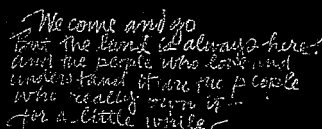 We come and go
But the land is always here.
and the people who love and
understand it are the people
who really own it —
for a little while.